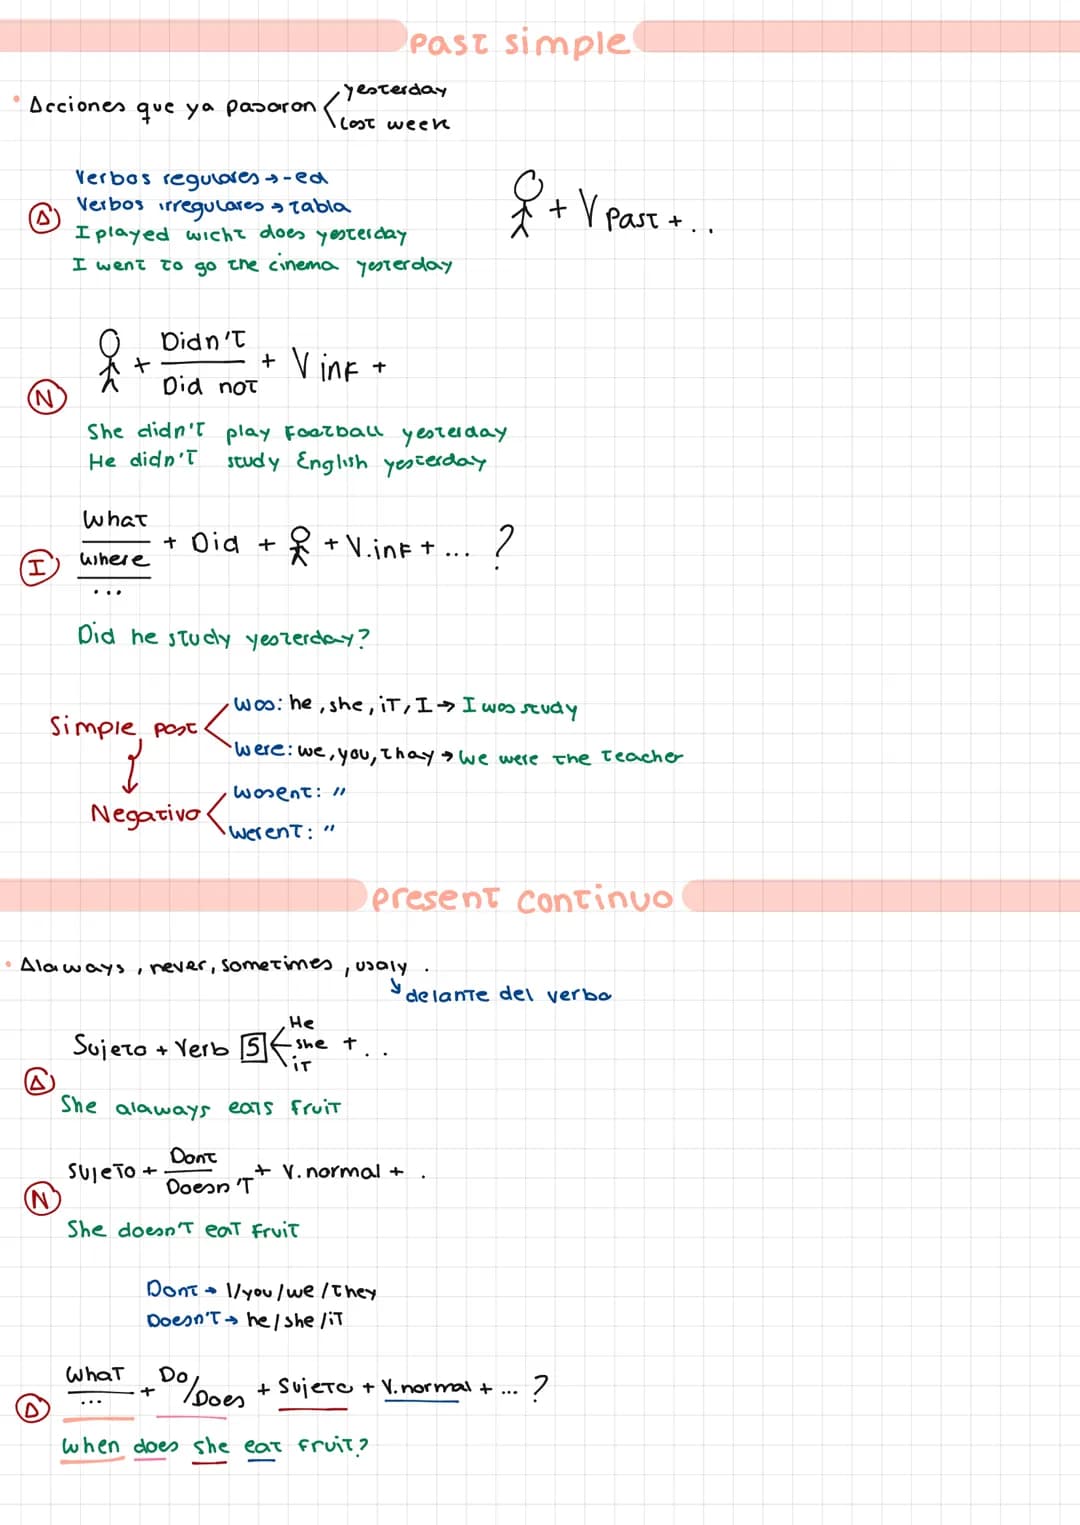 past simple
• Acciones que ya pasaron
yesterday
last week
Verbos regulares → -ed
Verbos irregulares → tabla
A
I played wicht does yesterday
I went to go the cinema yesterday
+ V past + ..
+ Didn't / Did not + V inf +
N
She didn't play Football yesterday
He didn't study English yesterday
What / where / ... + Did + + V.inf + ... ?
I
Did he study yesterday?
Simple past
was: he, she, it, I → I was study
were: we, you, thay → we were the teacher
Negativo
wasent: "
werent: "
present continuo
• Alaways, never, sometimes, usaly .
delante del verbo
Sujeto + Verb S He / she / it + ..
A
She alaways eats fruit
Sujeto + Dont / Doesn't + V. normal + .
N
She doesn't eat fruit
Dont → I/you/we/they
Doesn't → he/she/it
What / ... + Do/Does + Sujeto + V. normal + ... ?
A
When does she eat fruit?